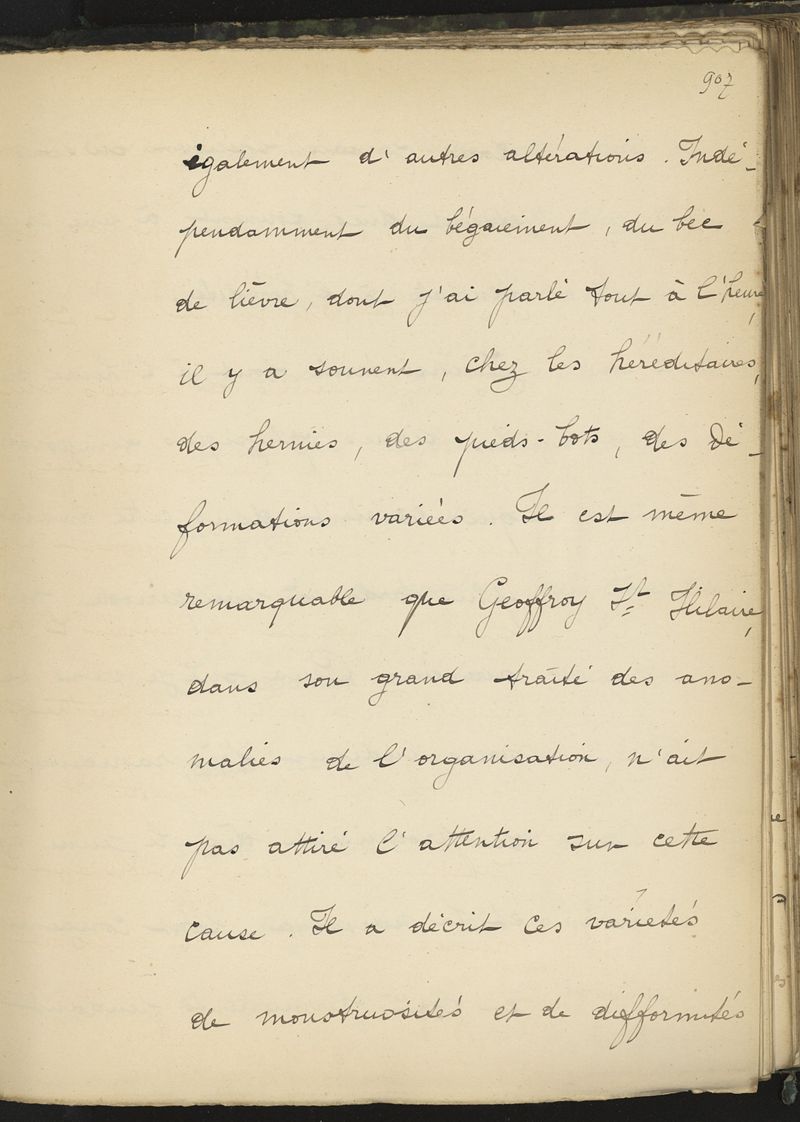 907
également d'autres altérations. Indé-
pendamment du bégaiement, du bec
de lièvre, dont j'ai parlé tout à l'heure,
il y a souvent, chez les héréditaires,
des hernies, des pieds-bots, des dé-
formations variées. Il est même
remarquable que Geoffroy St Hilaire,
dans son grand traité des ano-
malies de l'organisation, n'ait
pas attiré l'attention sur cette
cause. Il a décrit ces variétés
de monstruosités et de difformités